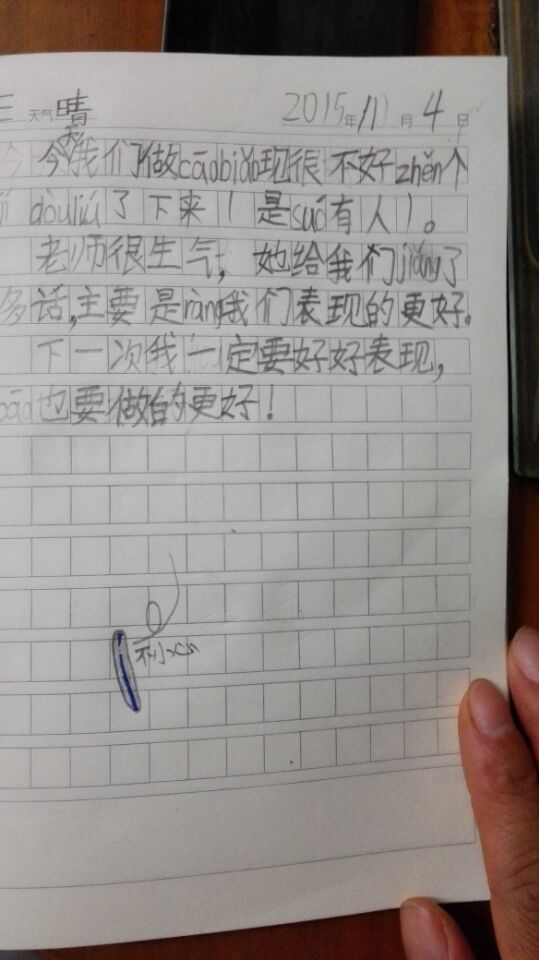 三 天气晴 2015年11月4日
今我们做cāobiǎo现很不好zhěn个
jí dōuliú了下来（是suǒ有人）。
老师很生气，她给我们jiǎng了
多话,主要是ràng我们表现的更好。
下一次我一定要好好表现，
cāo也要做的更好！